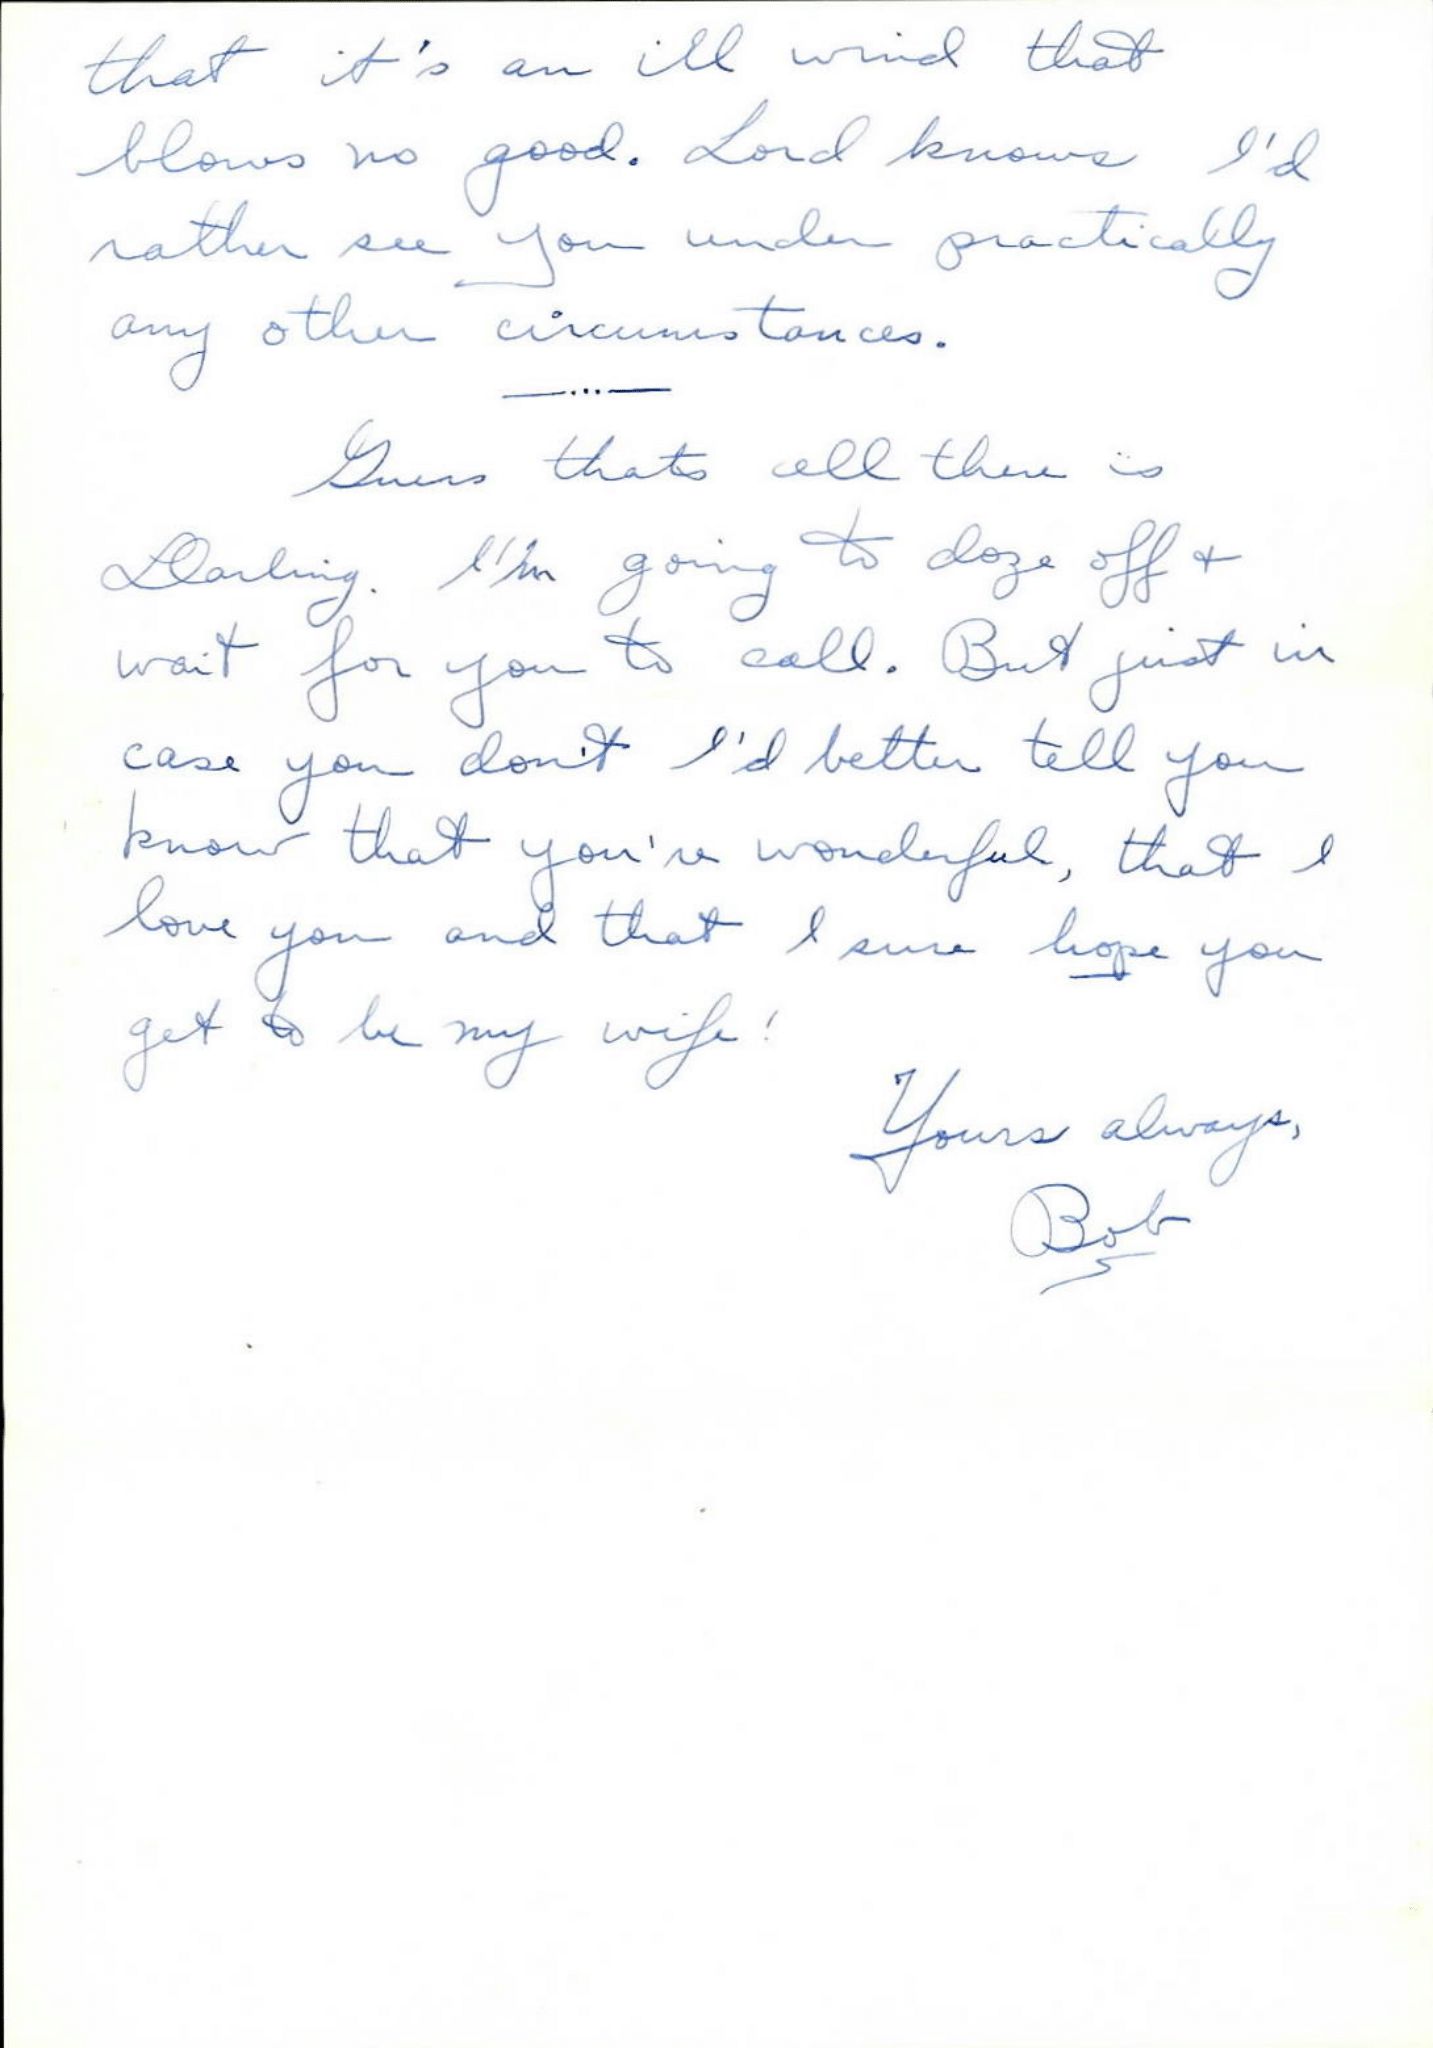 that it's an ill wind that
blows no good. Lord knows I'd
rather see you under practically
any other circumstances.
—...—
Guess thats all there is
Darling. I'm going to doze off +
wait for you to call. But just in
case you don't I'd better tell you
know that you're wonderful, that I
love you and that I sure hope you
get to be my wife!
Yours always,
Bob